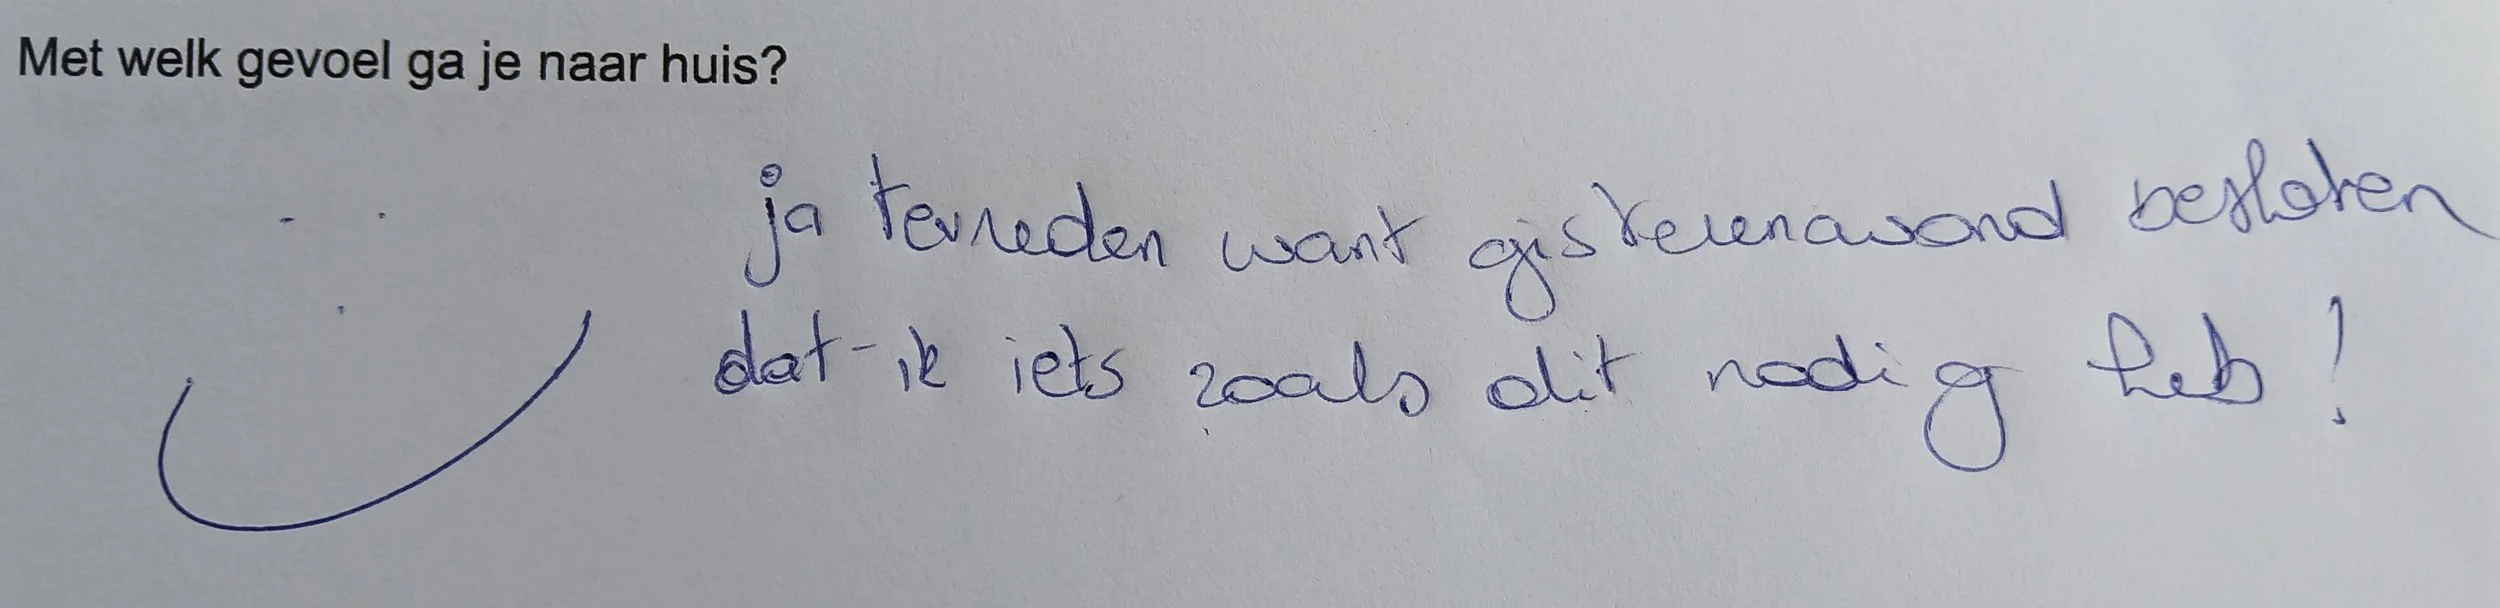 Met welk gevoel ga je naar huis?
ja tevreden want gisterenavond besloten
dat ik iets zoals dit nodig heb!